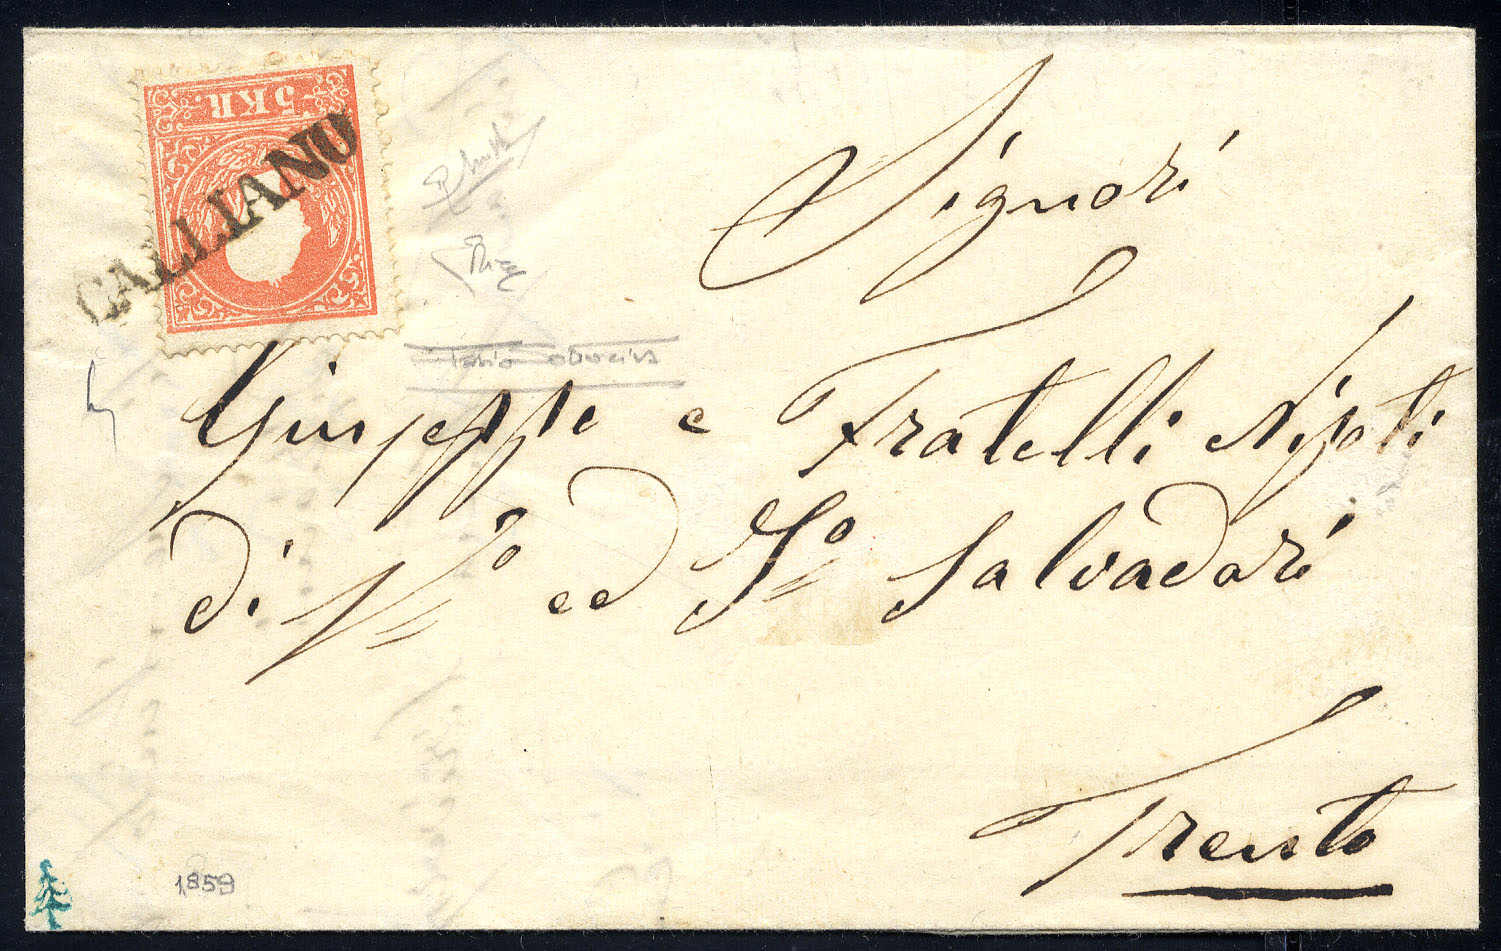 5 KR.
CALLIANO
Signori
Giuseppe e Fratelli Nipoti
di V.º ed I.º Salvadori
Trento
1859